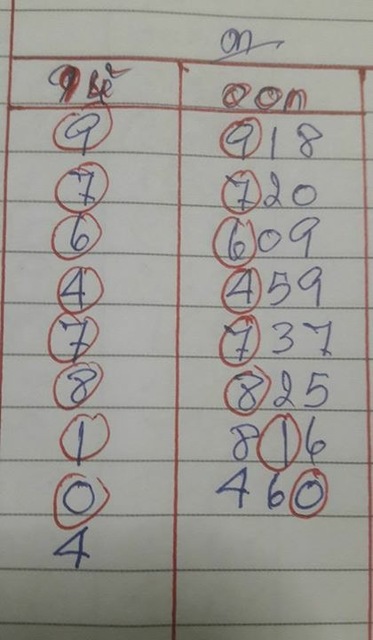 on
9 918
7 720
6 609
4 459
7 737
8 825
1 816
0 460
4